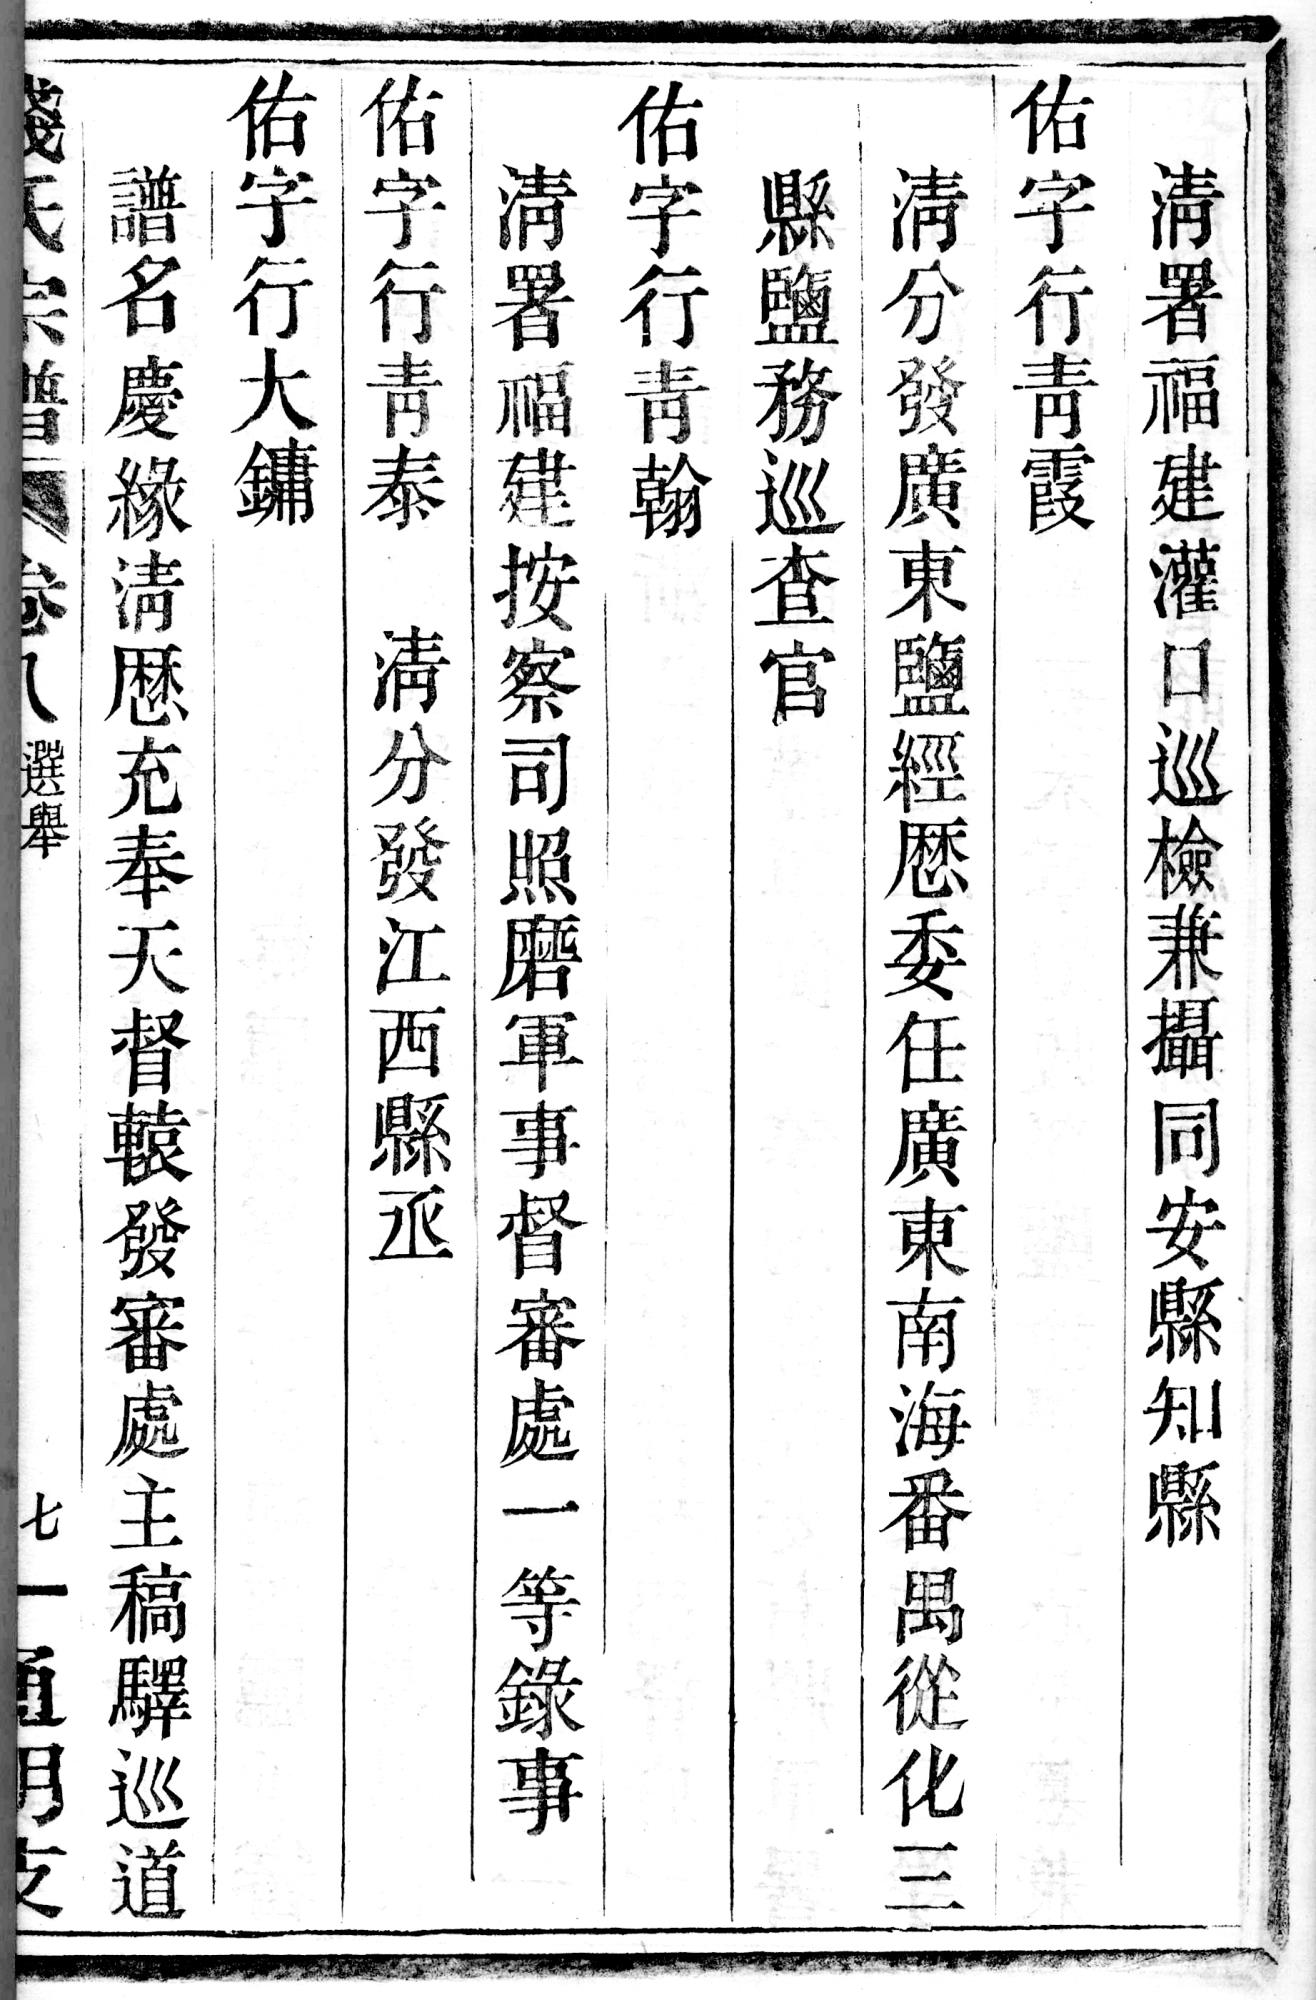 淸署福建灌口巡檢兼攝同安縣知縣
佑字行靑霞
淸分發廣東鹽經厯委任廣東南海番禺從化三
縣鹽務巡查官
佑字行靑翰
淸署福建按察司照磨軍事督審處一等錄事
佑字行靑泰　淸分發江西縣丞
佑字行大鏞
譜名慶緣淸厯充奉天督轅發審處主稿驛巡道
錢氏宗譜　卷八　選舉　七　通明支